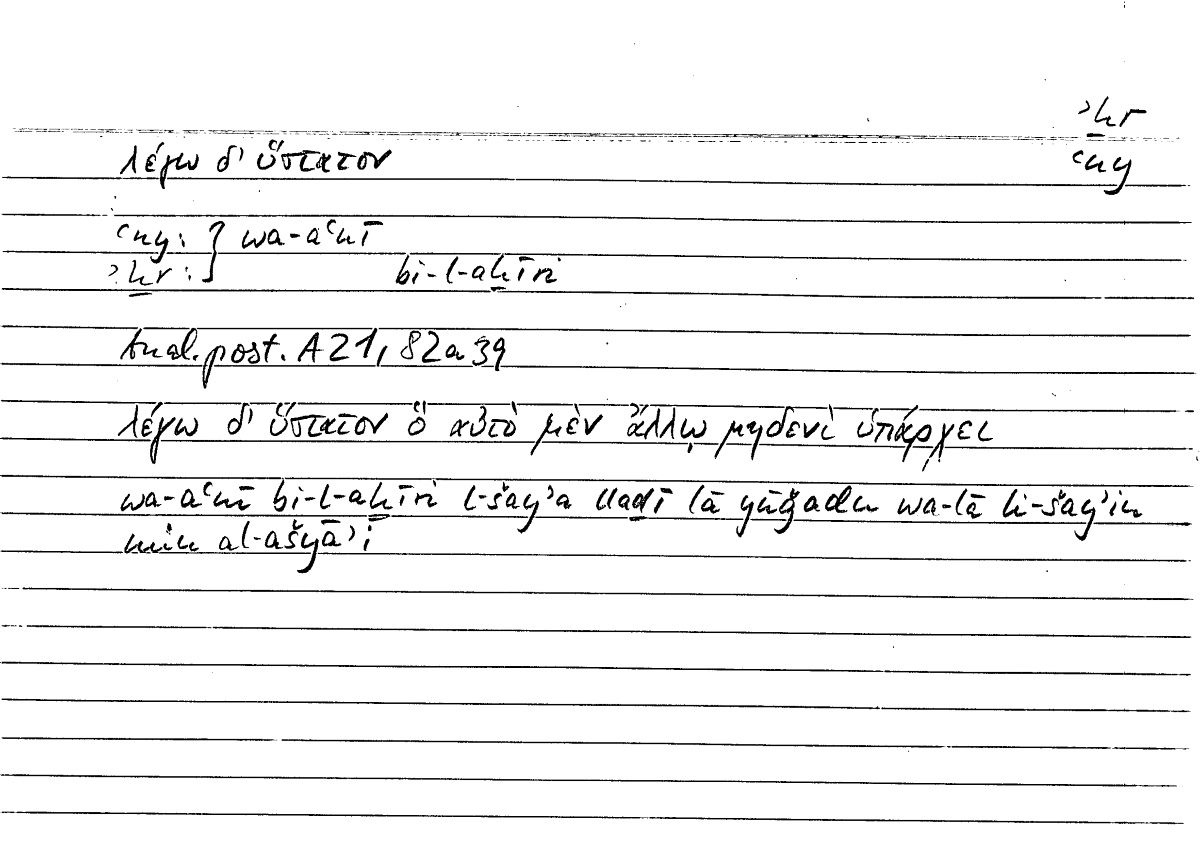 ʾḫr
λέγω δ' ὕστατον
ʿny
ʿny: } wa-aʿnī
ʾḫr: bi-l-aḫīri
Anal. post. A 21, 82a39
λέγω δ' ὕστατον ὃ αὐτὸ μὲν ἄλλῳ μηδενὶ ὑπάρχει
wa-aʿnī bi-l-aḫīri l-šayʾa lladī lā yūǧadu wa-lā li-šayʾin
min al-ašyāʾi